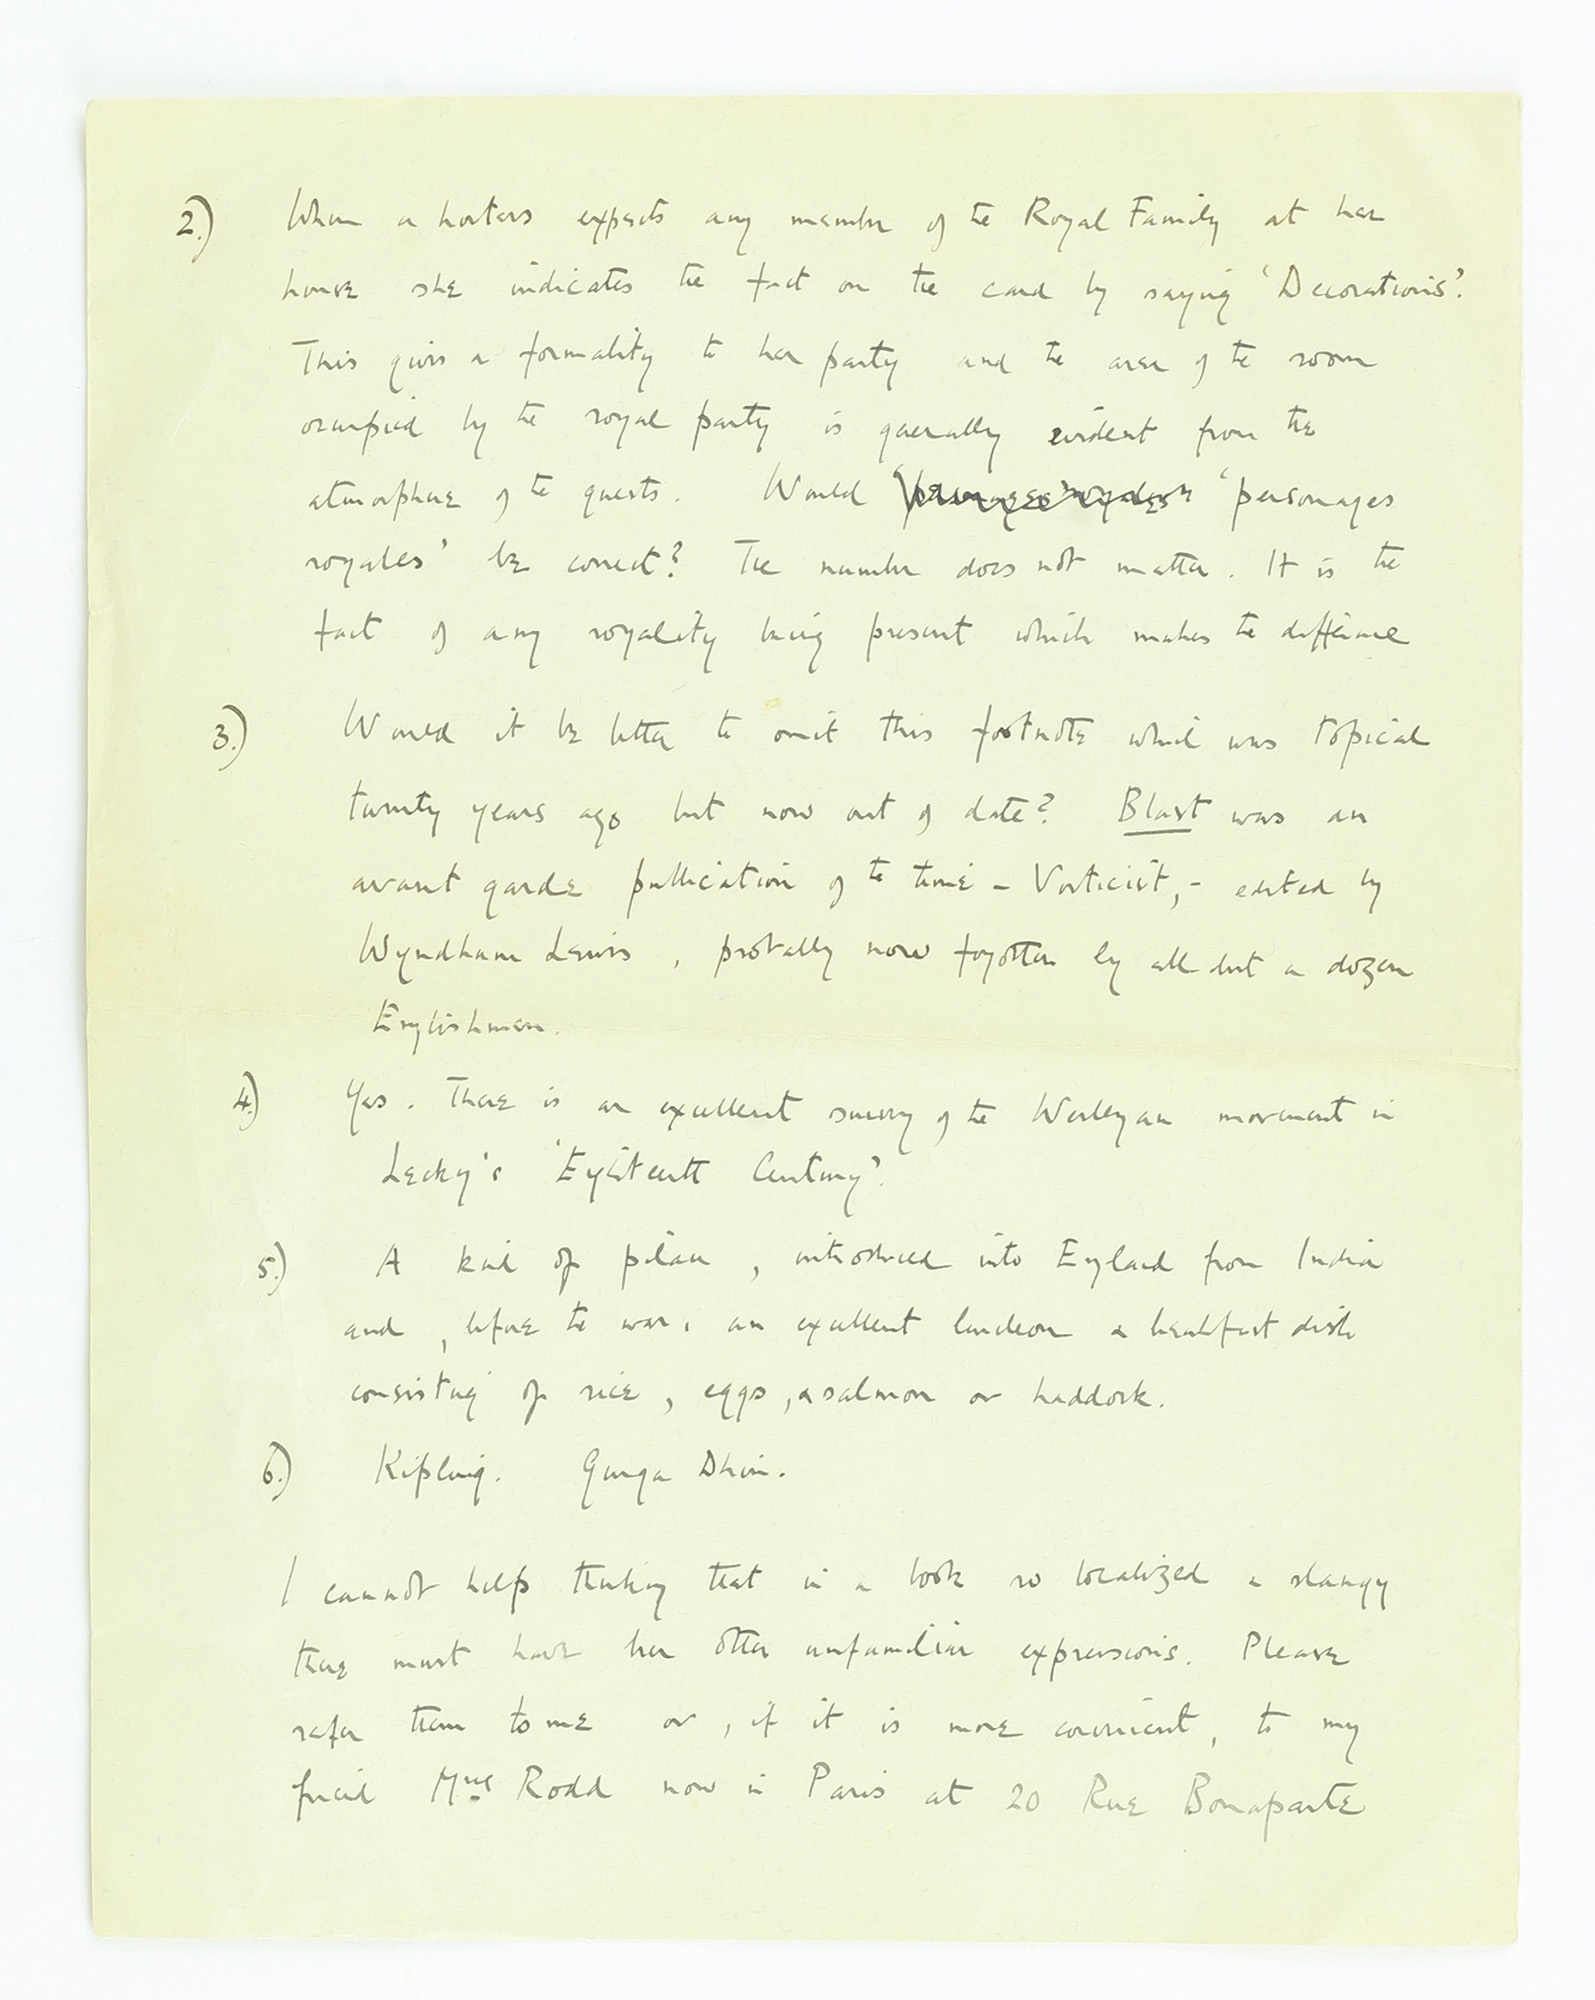 2.) When a hostess expects any member of the Royal Family at her
house she indicates the fact on the card by saying 'Decorations'.
This gives a formality to her party and the area of the room
occupied by the royal party is generally evident from the
atmosphere of the guests. Would 'personages
royales' be correct? The number does not matter. It is the
fact of any royality being present which makes the difference
3.) Would it be better to omit this footnote which was topical
twenty years ago but now out of date? Blast was an
avant garde publication of the time - Vorticist, - edited by
Wyndham Lewis, probably now forgotten by all but a dozen
Englishmen.
4.) Yes. There is an excellent survey of the Wesleyan movement in
Lecky's 'Eighteenth Century'.
5.) A kind of pilau, introduced into England from India
and, before the war, an excellent luncheon & breakfast dish
consisting of rice, eggs, & salmon or haddock.
6.) Kipling. Gunga Dhin.
I cannot help thinking that in a book so localized & slangy
there must have been other unfamiliar expressions. Please
refer them to me or, if it is more convenient, to my
friend Mrs Rodd now in Paris at 20 Rue Bonaparte